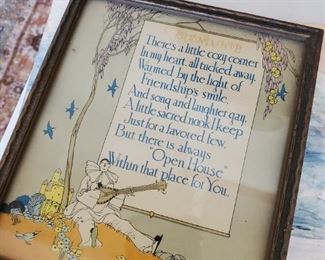 There's a little cozy corner
In my heart, all tucked away.
Warmed by the light of
Friendship's smile,
And song and laughter gay.
A little sacred nook I keep
Just for a favored few,
But there is always
"Open House"
Within that place for You.